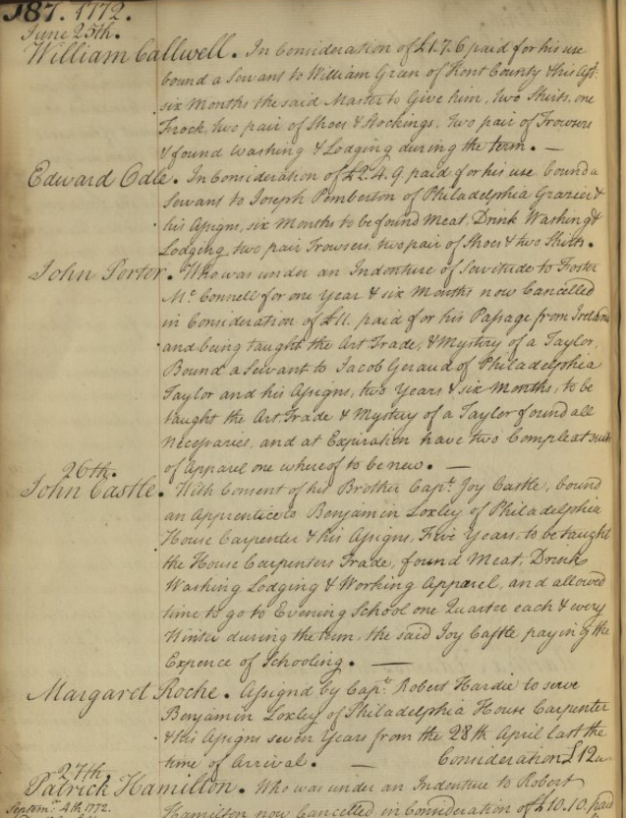 187. 1772.
June 25th.
William Callwell. In Consideration of £1.7.6 paid for his use
bound a Servant to William Green of Kent County & his Assˢ.
six Months the said Master to Give him, two Shirts, one
Frock, two pair of Shoes & Stockings, two pair of Trowsers
& found Washing & Lodging during the term. —
Edward Odle. In Consideration of £2.4.9. paid for his use bound a
Servant to Joseph Pemberton of Philadelphia Grazier &
his Assigns, six Months to be found Meat Drink Washing &
Lodging, two pair Trowsers, two pair of Shoes & two Shirts.
John Porter. Who was under an Indenture of Servitude to Foster
Mᶜ Connell for one Year & six Months now Cancelled
in Consideration of £11. paid for his Passage from Ireland
and being taught the Art Trade, & Mystery of a Taylor,
Bound a Servant to Jacob Geraud of Philadelphia
Taylor and his Assigns, two Years & six Months, to be
taught the Art, Trade & Mystery of a Taylor found all
Necessaries, and at Expiration have two Compleat suits
of Apparel one whereof to be new. —
26th.
John Castle. With Consent of his Brother Capᵗ. Joy Castle, bound
an Apprentice to Benjamin Loxley of Philadelphia
House Carpenter & his Assigns, Five Years, to be taught
the House Carpenters Trade, found Meat, Drink
Washing Lodging & Working Apparel, and allowed
time to go to Evening School one Quarter each & every
Winter during the term, the said Joy Castle, paying the
Expence of Schooling. —
Margaret Roche. Assignd by Capᵗ. Robert Hardie to serve
Benjamin Loxley of Philadelphia House Carpenter
& his Assigns seven Years from the 28th April last the
time of Arrival. — Consideration £12
27th
Patrick Hamilton. Who was under an Indenture to Robert
Septemʳ. 4th 1772.
Hamilton now Cancelled in Consideration of £10.10. paid